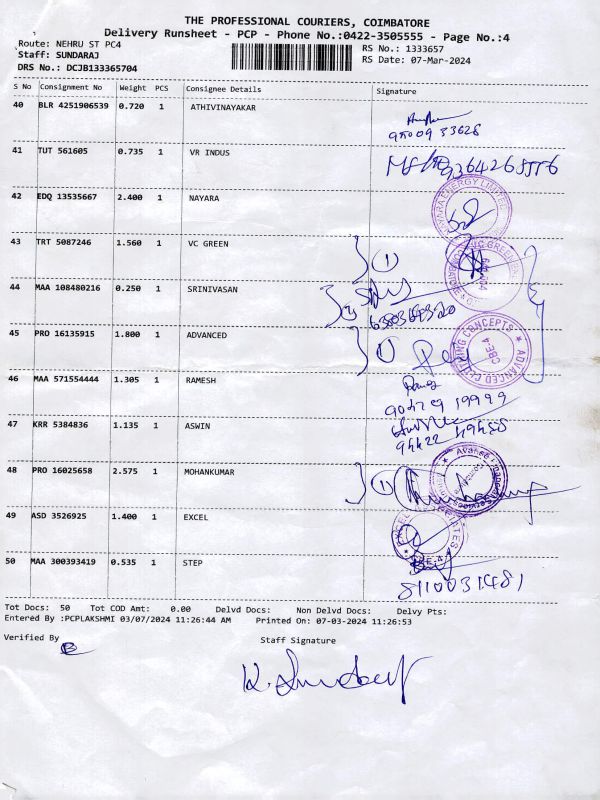 THE PROFESSIONAL COURIERS, COIMBATORE
Delivery Runsheet - PCP - Phone No.:0422-3505555 - Page No.:4
Route: NEHRU ST PC4 RS No.: 1333657
Staff: SUNDARAJ RS Date: 07-Mar-2024
DRS No.: DCJB133365704
S No Consignment No Weight PCS Consignee Details Signature
40 BLR 4251906539 0.720 1 ATHIVINAYAKAR
41 TUT 561605 0.735 1 VR INDUS
42 EDQ 13535667 2.400 1 NAYARA
NAYARA ENERGY LIMITED
43 TRT 5087246 1.560 1 VC GREEN
1
44 MAA 108480216 0.250 1 SRINIVASAN
45 PRO 16135915 1.800 1 ADVANCED
1
CONCEPTS ★ ADVANCED
CBE-4
46 MAA 571554444 1.305 1 RAMESH
47 KRR 5384836 1.135 1 ASWIN
48 PRO 16025658 2.575 1 MOHANKUMAR
1
49 ASD 3526925 1.400 1 EXCEL
EXCEL
50 MAA 300393419 0.535 1 STEP
8110031481
Tot Docs: 50 Tot COD Amt: 0.00 Delvd Docs: Non Delvd Docs: Delvy Pts:
Entered By :PCPLAKSHMI 03/07/2024 11:26:44 AM Printed On: 07-03-2024 11:26:53
Verified By Staff Signature